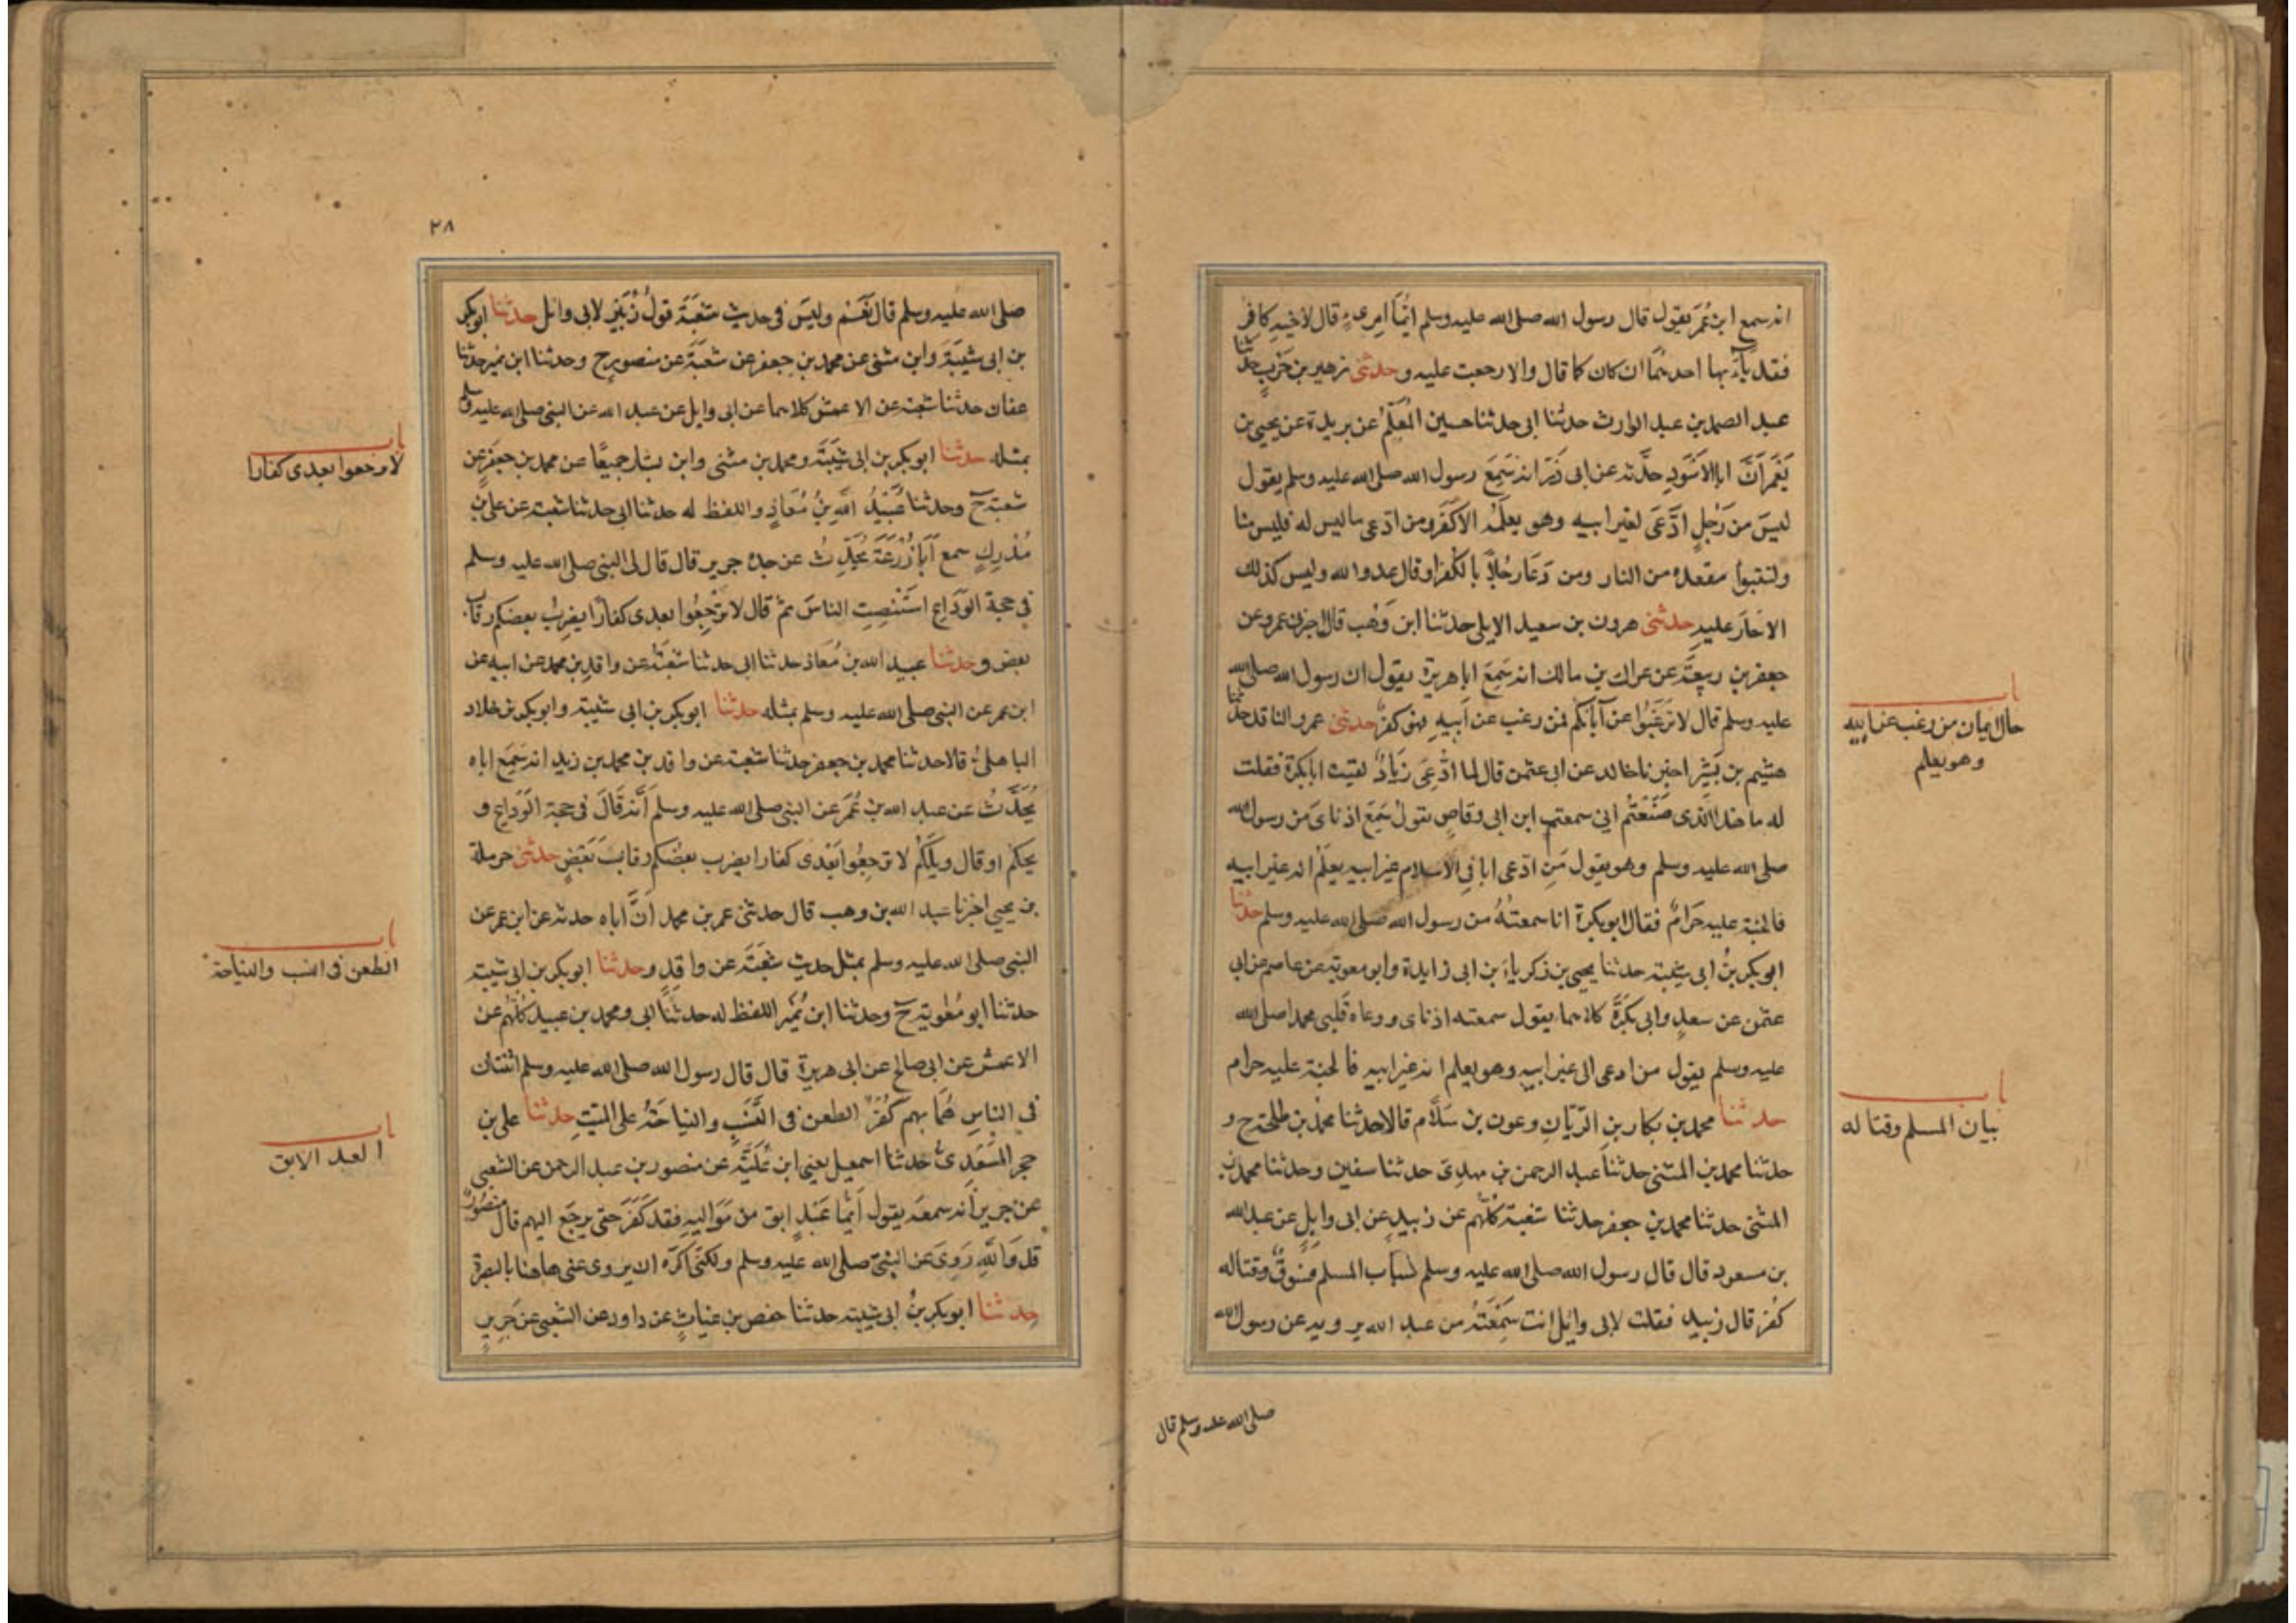 انه سمع ابن عُمَر يقول قال رسول الله صلى الله عليه وسلم ايُّمَا امرىءٍ قال لاخيه كافر
فقد بَآءَ بها احدهُمَا ان كان كما قال والا رجعت عليه وحدثنى زهير بن حَرْبٍ حدثنا
عبد الصمد بن عبد الوارث حدثنا ابى حدثنا حسين المُعَلِّمُ عن بريدة عن يحيى بن
يَعْمَرَ اَنَّ ابا الاَسْوَدِ حدَّثه عن ابى ذَرّ انه سَمِعَ رسول الله صلى الله عليه وسلم يقول
ليسَ مِن رَجُلٍ ادَّعَى لغير ابيه وهو يعلَمُه الا كَفَر ومن ادّعى ما ليس له فليس منّا
ولتتبوأ مقعده من النار ومن دَعَا رَجُلاً بالكُفر او قال عدو الله وليس كذلك
الا حَارَ عليه حدثنى هرون بن سعيد الايلى حدثنا ابن وَهْب قال اخبرنى عمرو عن
جعفر بن ربيعَةَ عن عراك بن مالك انه سَمِعَ ابا هريرة يقول ان رسول الله صلى الله
عليه وسلم قال لا ترغَبُوا عن آبائكم فمن رغب عن اَبيهِ فهو كفرٌ حدثنى عمرو الناقد حدثنا
هشيم بن بَشِير اخبرنا خالد عن ابى عثمن قال لما ادُّعِىَ زيادٌ لقيت ابا بكرة فقلت
له ما هذا الّذى صَنَعْتُم انى سمعتم ابن ابى وقاصٍ يقولُ سَمِعَ اذناىَ من رسول الله
صلى الله عليه وسلم وهو يقول مَنِ ادّعى ابا فى الاسلام غير ابيه يعلَمُ انه غير ابيه
فالجنة عليه حَرامٌ فقال ابو بكرة انا سمعتُهُ من رسول الله صلى الله عليه وسلم حدثنا
ابو بكر بنُ ابى شيبة حدثنا يحيى بن زكرياء بن ابى زايدة وابو معوية عن عاصم عن ابى
عثمن عن سعدٍ وابى بَكرَةَ كلاهما يقول سمعته اذناى ووعاه قلبى محمدا صلى الله
عليه وسلم يقول من ادعى الى غير ابيه وهو يعلم انه غير ابيه فالجنة عليه حرام
حدثنا محمد بن بكار بن الرّيّانِ وعون بن سَلاَّم قالا حدثنا محمد بن طلحة ح و
حدثنا محمد بن المثنى حدثنا عبد الرحمن بن مهدى حدثنا سفين وحدثنا محمد بن
المثنى حدثنا محمد بن جعفر حدثنا شعبة كلّهم عن زبيدٍ عن ابى وايلٍ عن عبد الله
بن مسعود قال قال رسول الله صلى الله عليه وسلم سُباب المسلم فُسُوقٌ وقتاله
كُفر قال زبيد فقلت لابى وائل انت سَمِعْتَهُ من عبد الله يرويه عن رسول الله
صلى الله عليه وسلم قال
باب
حال ايمان من رغب عن ابيه
وهو يعلم
باب
بيان المسلم وقتاله
٢٨
صلى الله عليه وسلم قال نَعَمْ وليسَ فى حديث شعبَةَ قولُ زُبَيْدٍ لابى وائل حدثنا ابو بكر
بن ابى شيبَةَ وابن مثنى عن محمد بن جعفر عن شعبَةَ عن منصورٍ ح وحدثنا ابن نمير حدثنا
عفان حدثنا شعبة عن الاعمش كلاهما عن ابى وايل عن عبد الله عن النبى صلى الله عليه وسلم
بمثله حدثنا ابو بكر بن ابى شيبَةَ ومحمد بن مثنى وابن بشار جميعًا عن محمد بن جعفر عن
شعبة ح وحدثنا عُبَيْدُ اللهِ بنُ مُعَاذٍ واللفظ له حدثنا ابى حدثنا شعبة عن على بن
مُدْرِكٍ سمع اَبَا زُرْعَةَ يُحَدِّثُ عن جده جرير قال قال لى النبى صلى الله عليه وسلم
فى حجة الوَدَاعِ استَنْصِتِ الناسَ ثم قال لا تَرْجِعُوا بعدى كفارًا يضربُ بعضكم رقاب
بعض وحدثنا عبيد الله بن مُعَاذ حدثنا ابى حدثنا شعبَةُ عن واقدِ بن محمد عن ابيه عن
ابن عمر عن النبى صلى الله عليه وسلم بمثله حدثنا ابو بكر بن ابى شيبة وابو بكر بن خلاد
الباهلىّ قالا حدثنا محمد بن جعفر حدثنا شعبة عن واقد بن محمد بن زيد انه سَمِعَ اباه
يُحَدِّثُ عن عبد الله بن عُمَرَ عن النبى صلى الله عليه وسلم اَنّه قَالَ فى حجة الوَدَاعِ و
يحكم او قال ويلَكُم لا ترجِعُوا بَعْدى كفارا يضرب بعضُكم رقابَ بَعْضٍ حدثنى حرملة
بن يحيى اخبرنا عبد الله بن وهب قال حدثنى عمر بن محمد اَنَّ اباه حدثه عن ابن عمر عن
النبى صلى الله عليه وسلم بمثل حديث شعبَةَ عن واقدٍ وحدثنا ابو بكر بن ابى شيبة
حدثنا ابو مُعٰوية ح وحدثنا ابن نُمَيْر اللفظ له حدثنا ابى ومحمد بن عبيد كلّهم عن
الاعمش عن ابى صالح عن ابى هريرة قال قال رسول الله صلى الله عليه وسلم اثنتان
فى الناسِ هُمَا بهم كُفْرٌ الطعن فى النَّسَبِ والنياحَةُ على الميّتِ حدثنا على بن
حجر السّعْدِىّ حدثنا اسمعيل يعنى ابن عُلَيَّةَ عن منصور بن عبد الرحمن عن الشعبى
عن جرير انه سمعَه يقول اَيّمَا عَبْدٍ ابق من مَوَاليهِ فقد كَفَرَ حتى يرجَع اليهم قال منصُورٌ
قد وَاللهِ رَوِىَ عن النبىّ صلى الله عليه وسلم ولكنى اكرَه ان يروى عنى هاهنا بالبصرة
حدثنا ابو بكر بنُ ابى شيبة حدثنا حفص بن غياثٍ عن داود عن الشعبى عن جَريرٍ
باب
لا ترجعوا بعدى كفارا
باب
الطعن فى النسب والنياحة
باب
العبد الابق